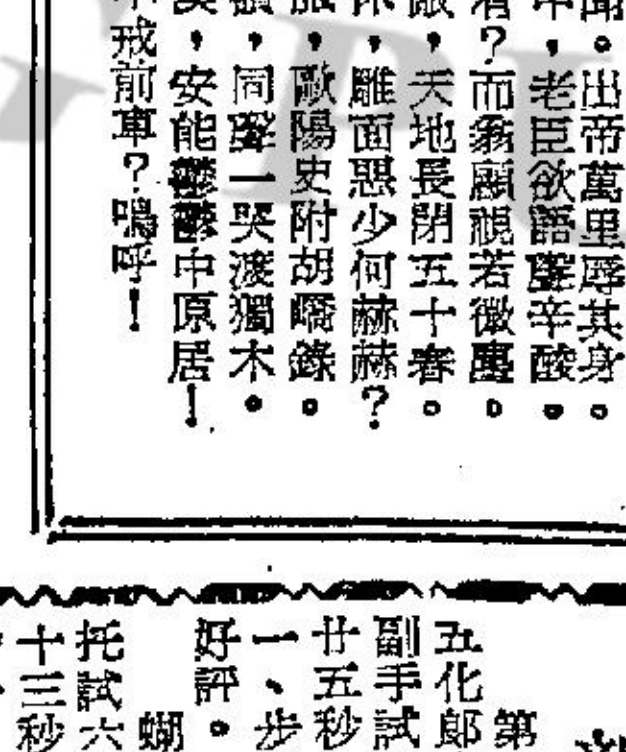 聞。出帝萬里辱其身。
中，老臣欲語聲辛酸。
有？而翁顧視若微塵。
敵，天地長閉五十春。
休，雕面惡少何赫赫？
旅，歐陽史附胡嶠錄。
，同聲一哭渡獨木。
，安能鬱鬱中原居！
戒前車？嗚呼！
第
五化郎
副手試
廿五秒
一、步
好評。
蝴
托試六
十三秒